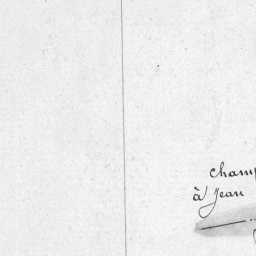 cham
à Jean